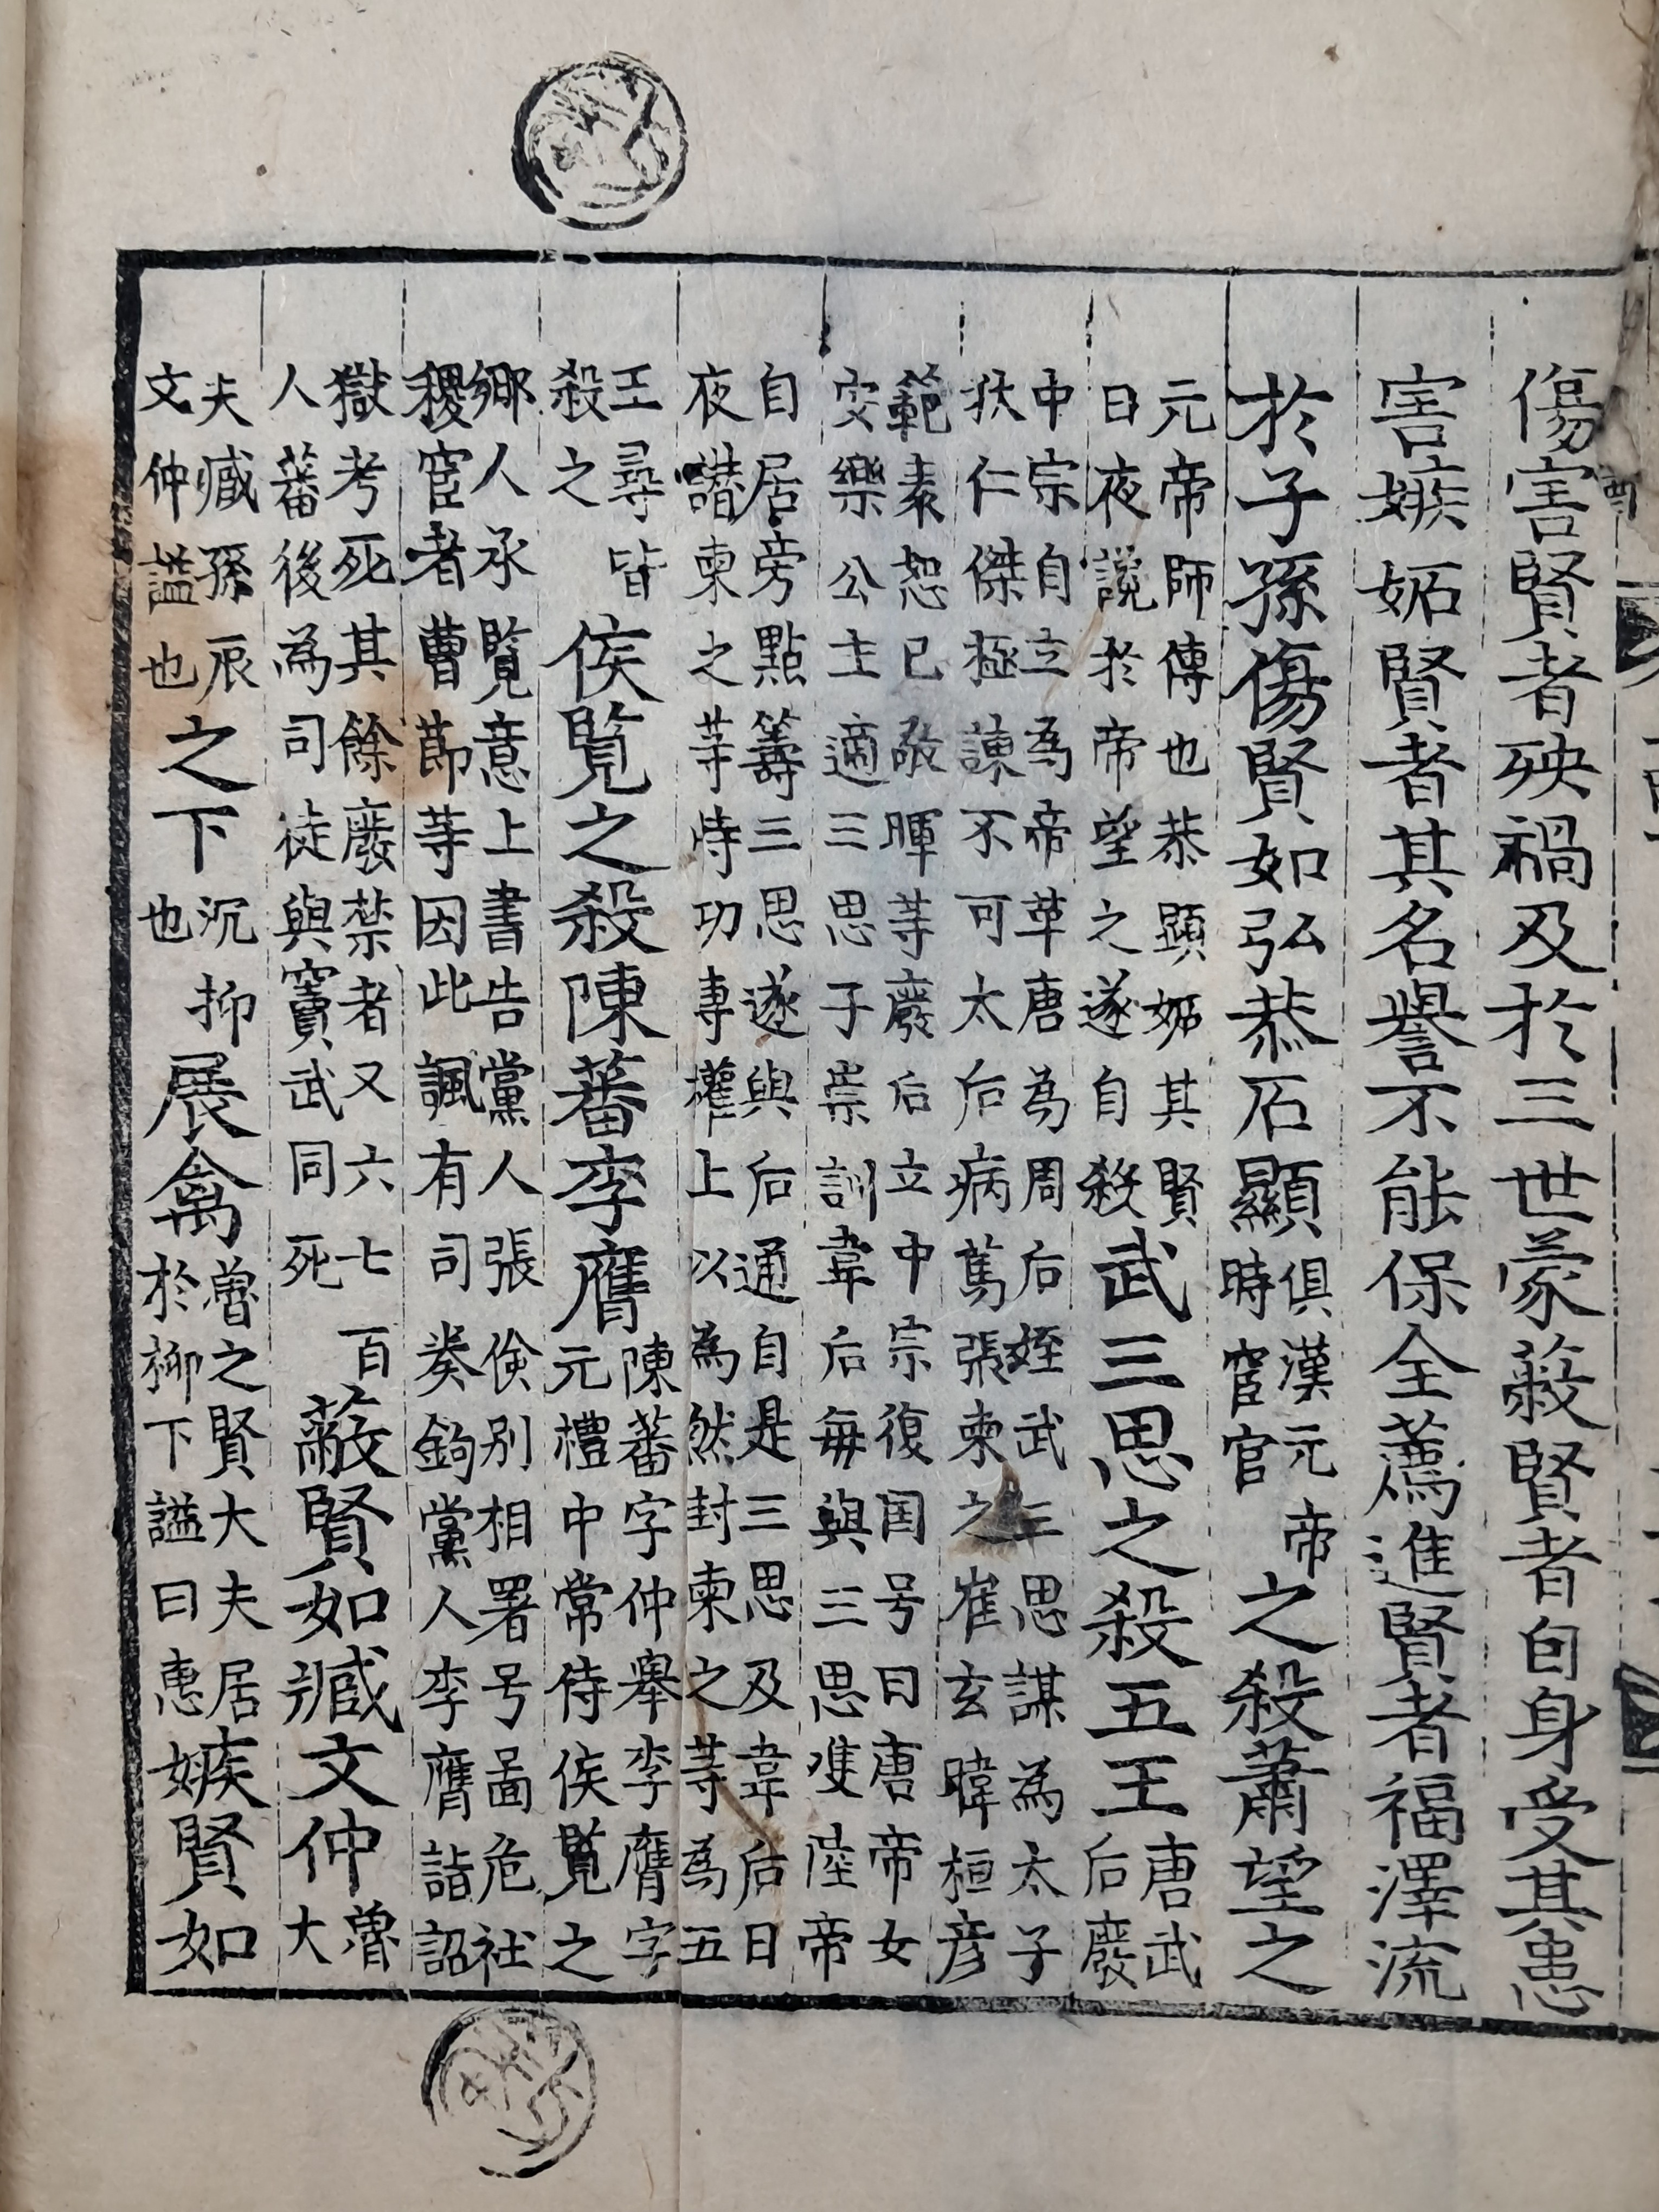 傷害賢者殃禍及於三世蒙蔽賢者自身受其患
害嫉妬賢者其名譽不能保全薦進賢者福澤流
於子孫傷賢如弘恭石顯俱漢元帝時宦官之殺蕭望之
元帝師傅也恭顯妬其賢日夜說於帝望之遂自殺武三思之殺五王唐武后廢
中宗自立為帝革唐為周后姪武三思謀為太子狄仁傑極諫不可太后病篤張柬之崔玄暐桓彦
範素恕已敬暉等廢后立中宗復国号曰唐帝女安樂公主適三思子崇訓韋后每與三思双陸帝
自居旁點籌三思遂與后通自是三思及韋后日夜譖柬之等恃功專權上以為然封柬之等為五
王尋皆殺之侯覧之殺陳蕃李膺陳蕃字仲舉李膺字元禮中常侍侯覧之
鄉人承覧意上書告黨人張儉別相署号圖危社稷宦者曹莭等因此諷有司奏鉤黨人李膺詣詔
獄考死其餘廢禁者又六七百人蕃後為司徒與竇武同死蔽賢如臧文仲魯大
夫臧孫辰文仲謚也之下沉抑也展禽魯之賢大夫居於柳下謚曰惠嫉賢如